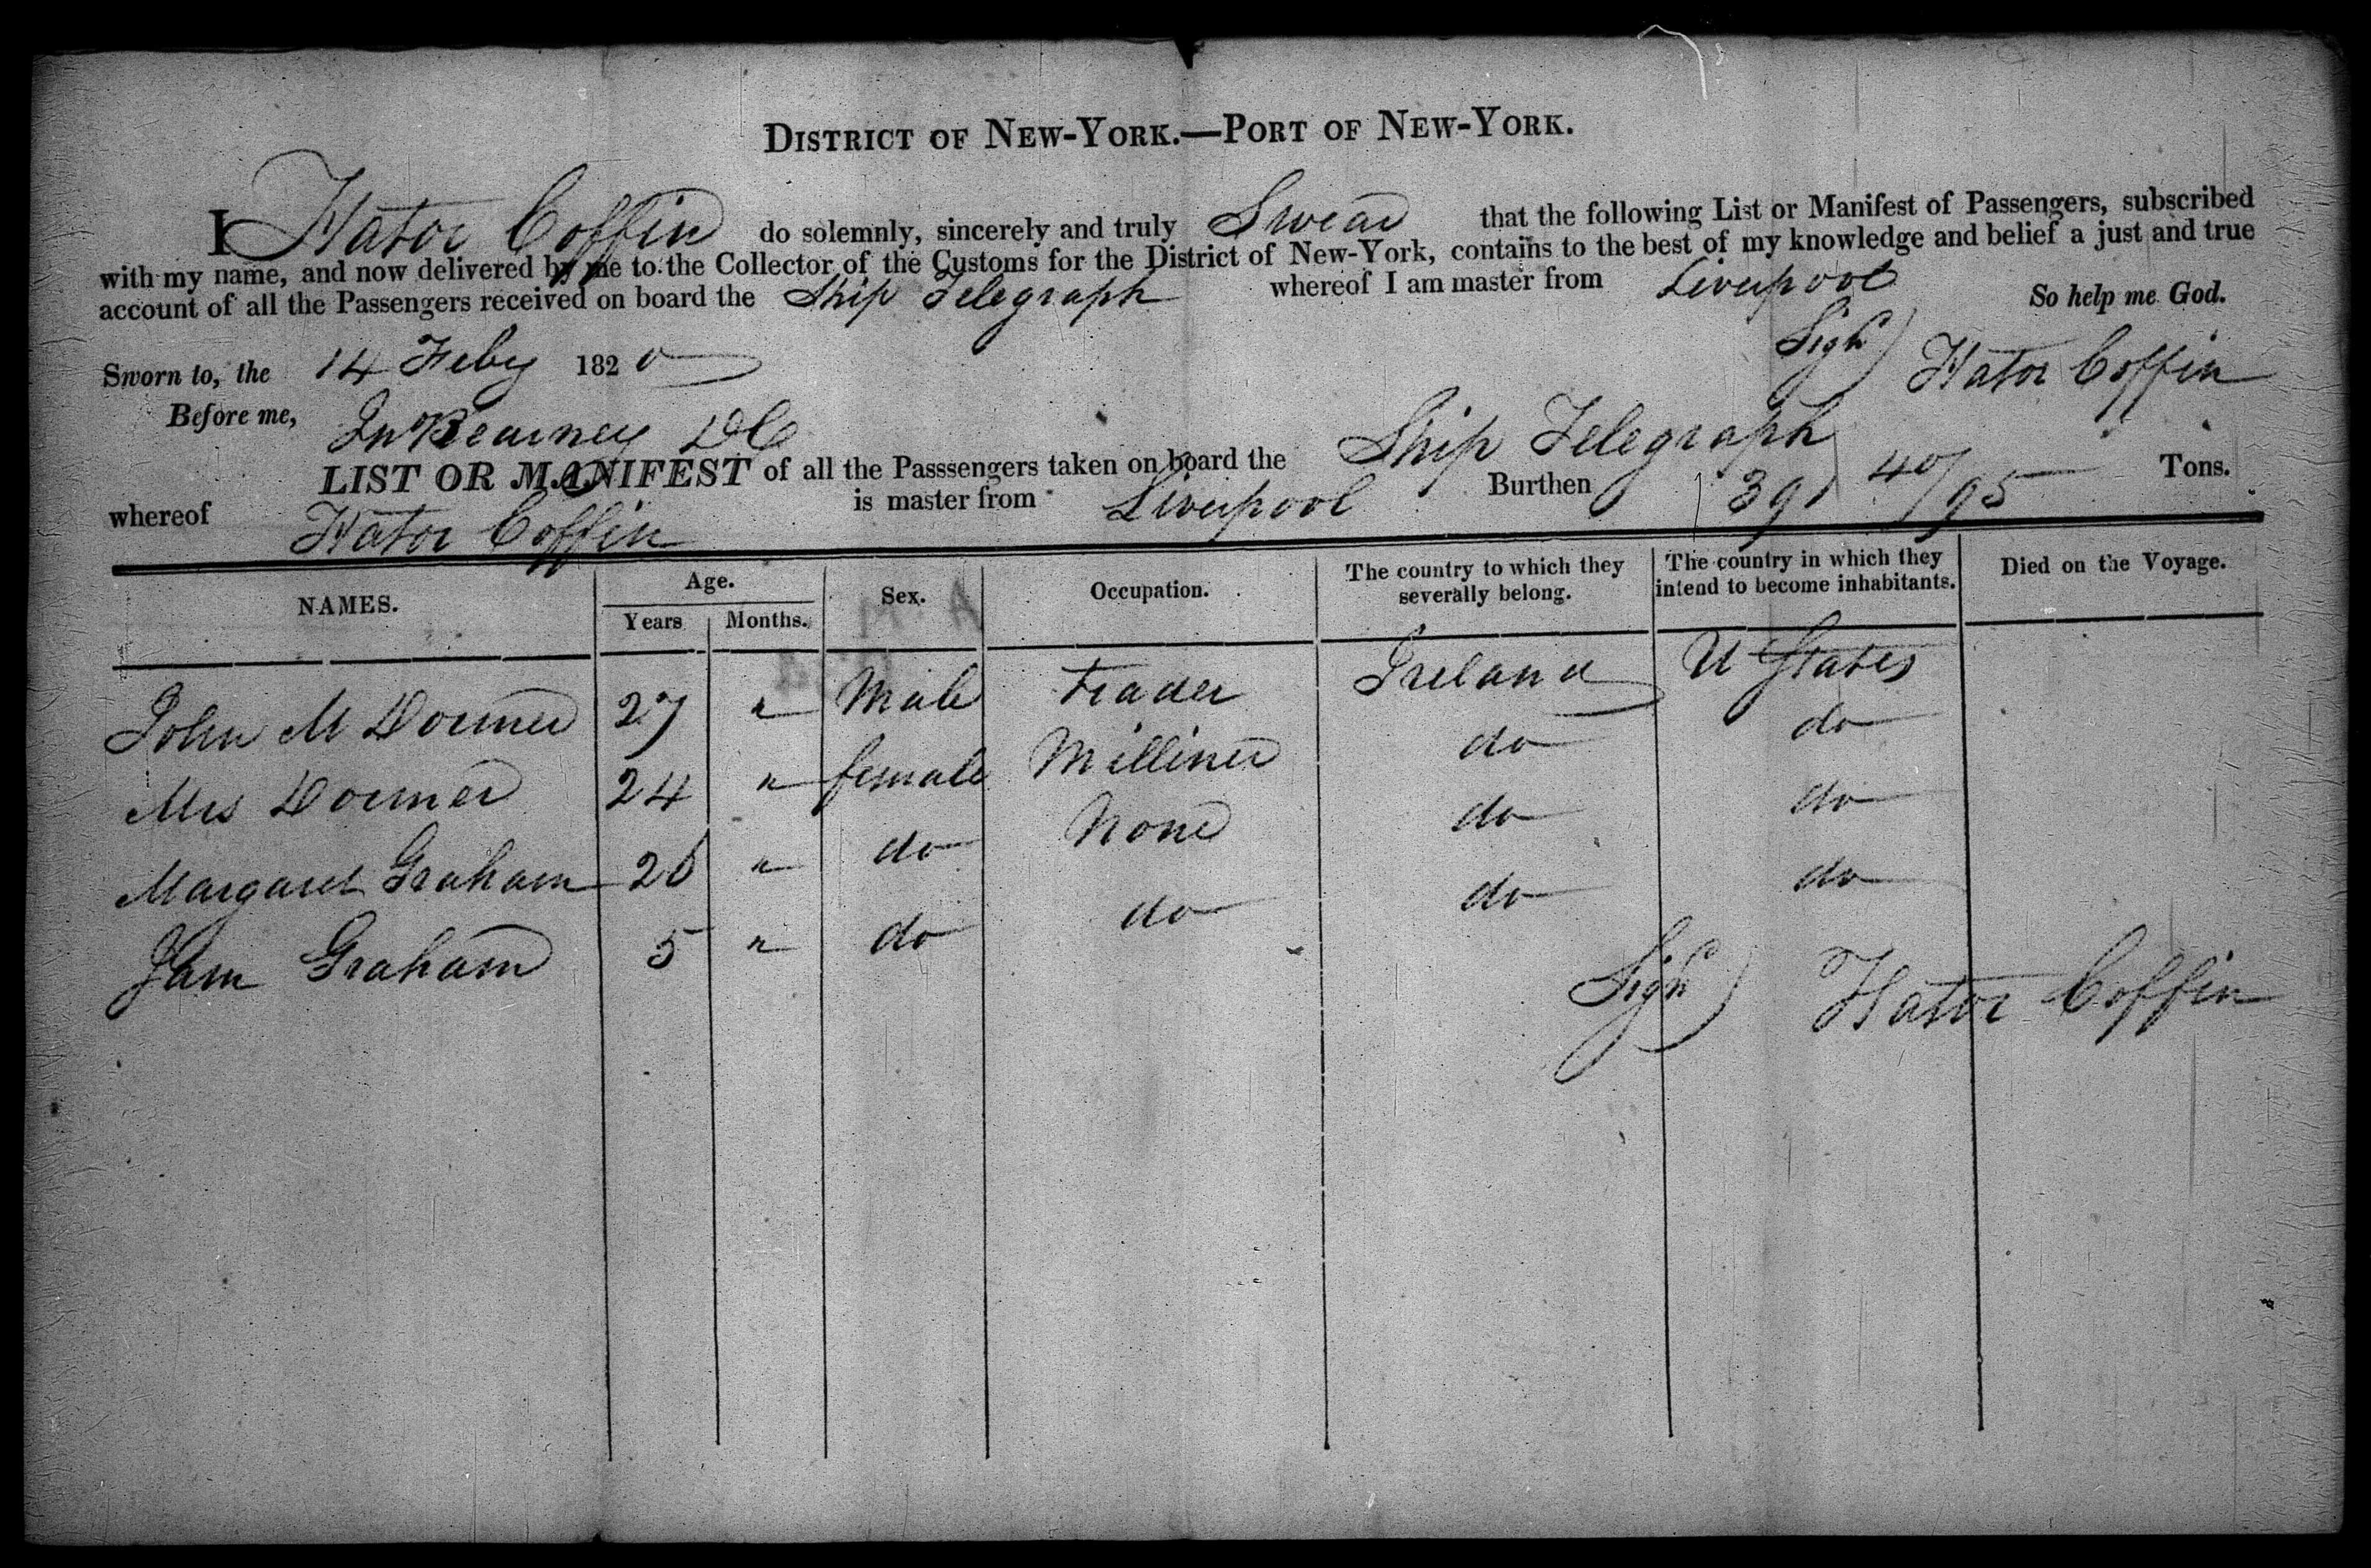 DISTRICT OF NEW-YORK.—PORT OF NEW-YORK.
I Hator Coffin do solemnly, sincerely and truly Swear that the following List or Manifest of Passengers, subscribed
with my name, and now delivered by me to the Collector of the Customs for the District of New-York, contains to the best of my knowledge and belief a just and true
account of all the Passengers received on board the Ship Telegraph whereof I am master from Liverpool So help me God.
Sworn to, the 14 Feby 1820 Sign^d Hator Coffin
Before me, Kearney DC
LIST OR MANIFEST of all the Passsengers taken on board the Ship Telegraph
whereof Hator Coffin is master from Liverpool Burthen 391 40/95 Tons.
NAMES. Age. Years Months. Sex. Occupation. The country to which they severally belong. The country in which they intend to become inhabitants. Died on the Voyage.
John M Dormer 27 " Male Trader Ireland U States
Mrs Dormer 24 " female Milliner do do
Margaret Graham 26 " do None do do
Graham 5 " do do do do
Sign^d Hator Coffin